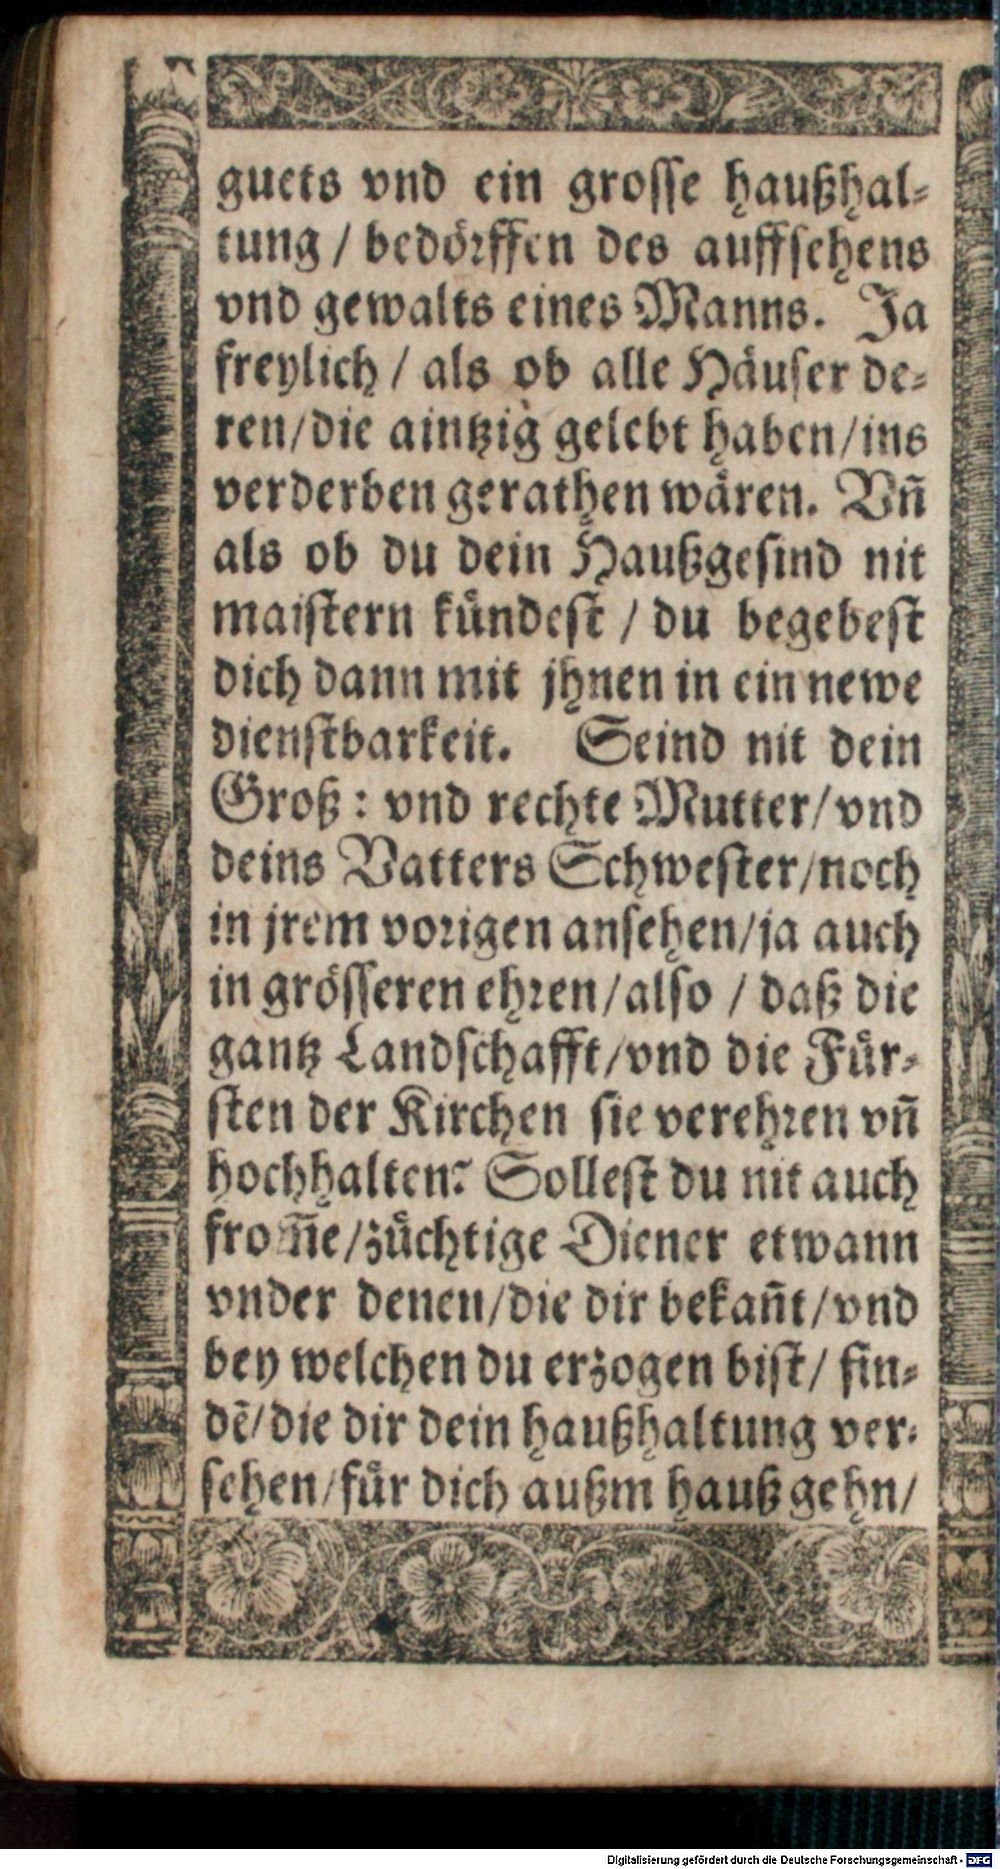 guets vnd ein grosse haußhal⸗
tung / bedörffen des auffsehens
vnd gewalts eines Manns. Ja
freylich / als ob alle Häuser de⸗
ren/die aintzig gelebt haben/ins
verderben gerathen wären. Vn̄
als ob du dein Haußgesind nit
maistern kündest / du begebest
dich dann mit jhnen in ein newe
dienstbarkeit. Seind nit dein
Groß: vnd rechte Mutter/vnd
deins Vatters Schwester/noch
in jrem vorigen ansehen/ja auch
in grösseren ehren/also / daß die
gantz Landschafft/vnd die Für⸗
sten der Kirchen sie verehren vn̄
hochhalten? Sollest du nit auch
from̄e/züchtige Diener etwann
vnder denen/die dir bekan̄t/vnd
bey welchen du erzogen bist/ fin⸗
dē/die dir dein haußhaltung ver⸗
sehen/für dich außm hauß gehn/
Digitalisierung gefördert durch die Deutsche Forschungsgemeinschaft - DFG